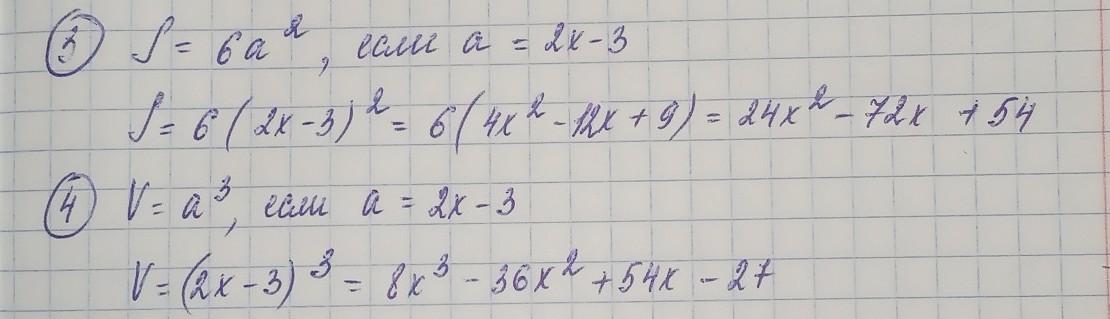 ③ S = 6a², если a = 2x-3
S = 6(2x-3)² = 6(4x²-12x+9) = 24x²-72x+54
④ V = a³, если a = 2x-3
V = (2x-3)³ = 8x³-36x²+54x-27